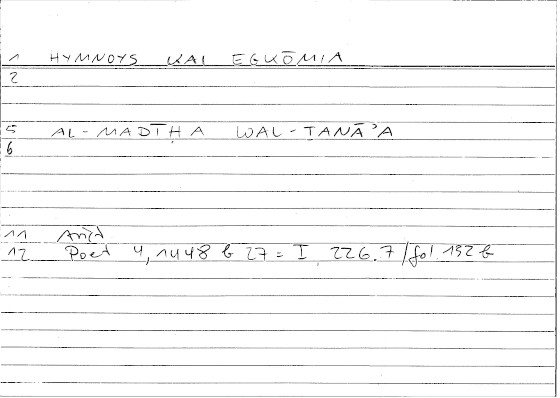 1 HYMNOYS KAI EGKŌMIA
2
5 AL-MADĪḤA WAL-ṮANĀʾA
6
11 Arist
12 Poet 4, 1448 b 27 = I 226.7/fol 132 b